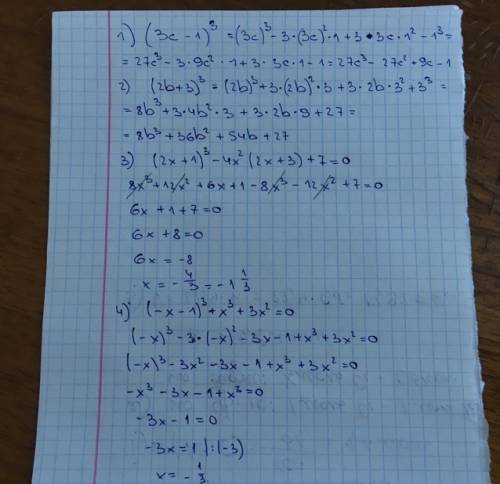 1) (3c-1)³ = (3c)³ - 3·(3c)²·1 + 3·3c·1² - 1³ =
= 27c³ - 3·9c²·1 + 3·3c·1 - 1 = 27c³ - 27c² + 9c - 1
2) (2b+3)³ = (2b)³ + 3·(2b)²·3 + 3·2b·3² + 3³ =
= 8b³ + 3·4b²·3 + 3·2b·9 + 27 =
= 8b³ + 36b² + 54b + 27
3) (2x+1)³ - 4x²(2x+3) + 7 = 0
8x³ + 12x² + 6x + 1 - 8x³ - 12x² + 7 = 0
6x + 1 + 7 = 0
6x + 8 = 0
6x = -8
x = -4/3 = -1 1/3
4) (-x-1)³ + x³ + 3x² = 0
(-x)³ - 3·(-x)² - 3x - 1 + x³ + 3x² = 0
(-x)³ - 3x² - 3x - 1 + x³ + 3x² = 0
-x³ - 3x - 1 + x³ = 0
-3x - 1 = 0
-3x = 1 |:(-3)
x = -1/3